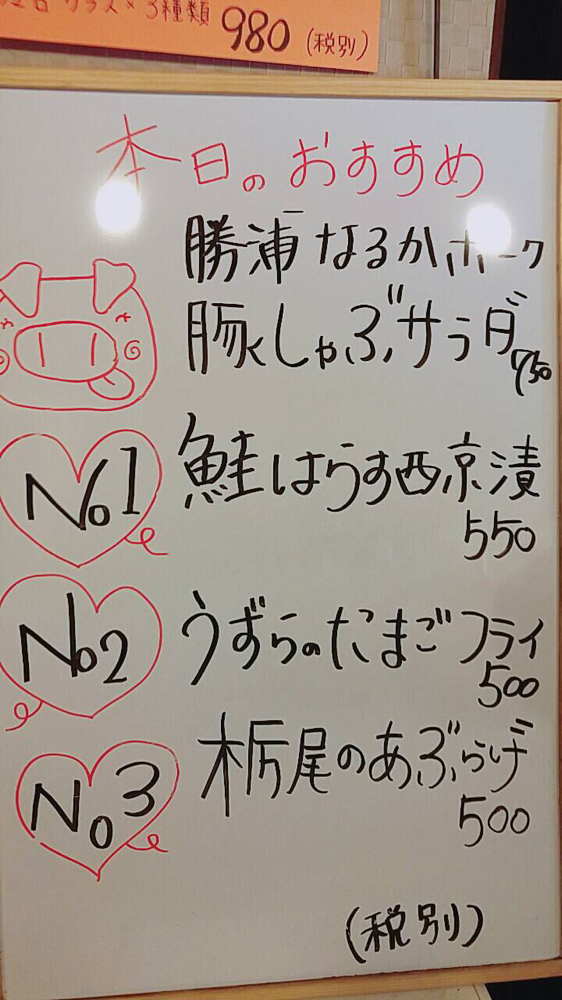 グラス×3種類 980 (税別)
本日のおすすめ
勝浦なるかポーク
豚しゃぶサラダ
750
No1 鮭はらす西京漬
550
No2 うずらのたまごフライ
500
No3 栃尾のあぶらげ
500
(税別)